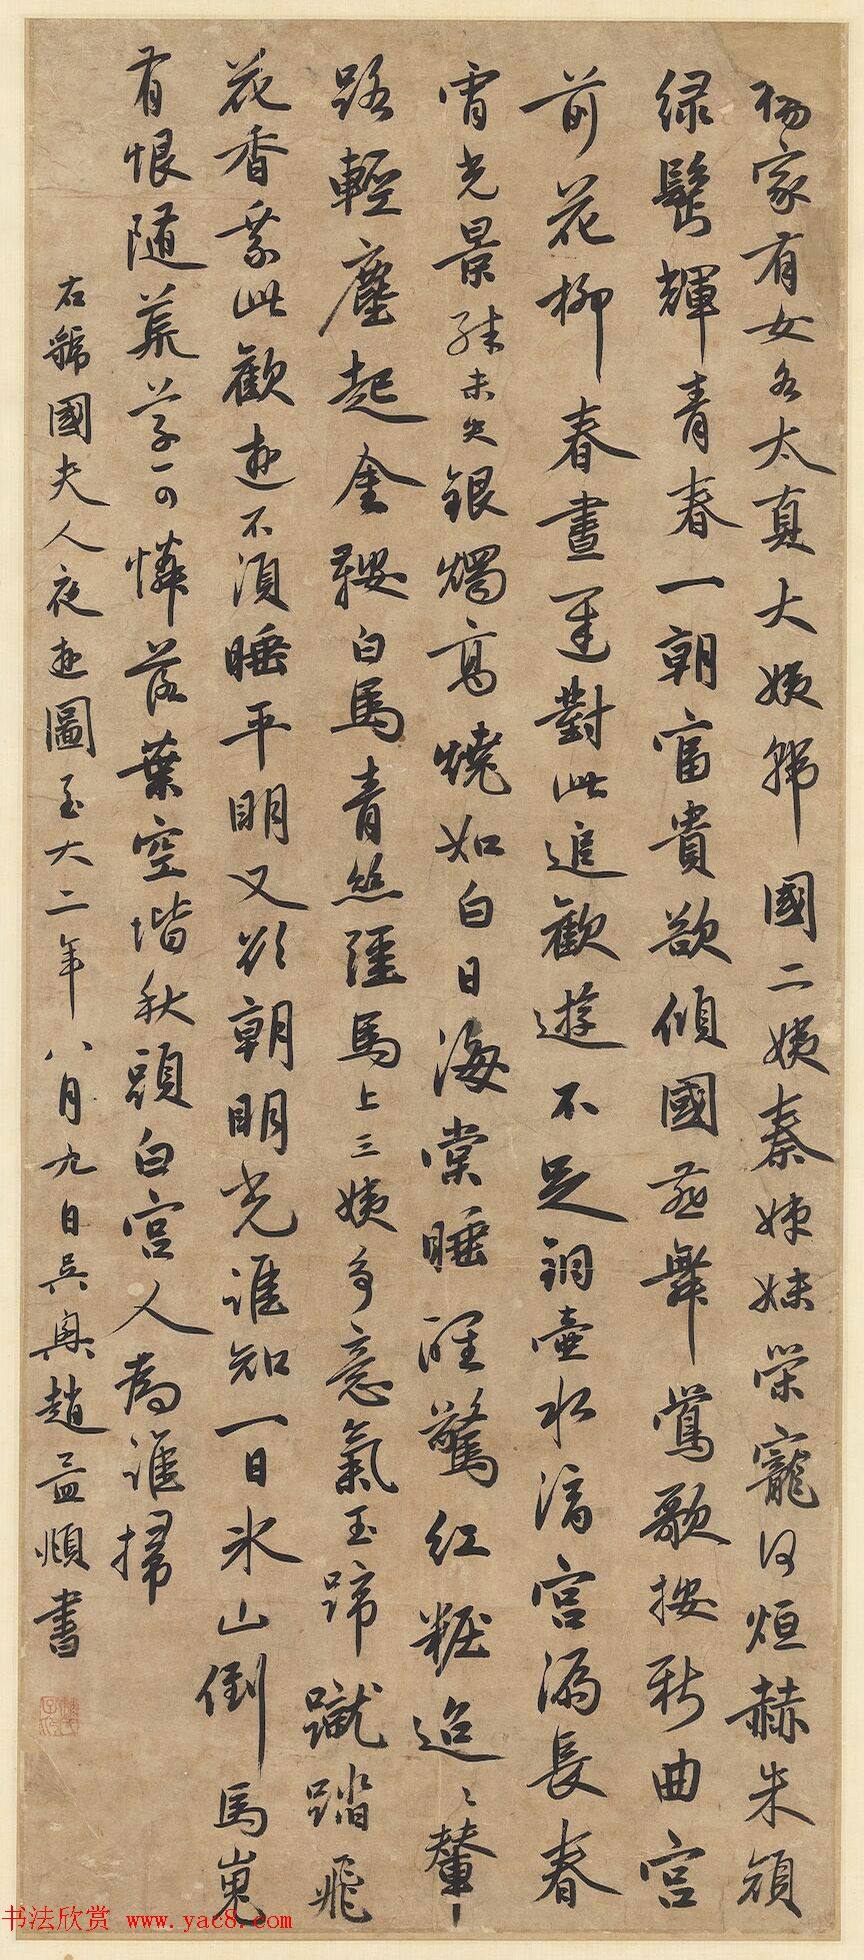 楊家有女名太真大姨號國二姨秦姊妹榮寵何烜赫朱顏
綠鬢輝青春一朝富貴欲傾國燕舞鶯歌按新曲宮
前花柳春晝遲對此追歡遊不足銅壺水滴宮漏長春
宵光景殊未央銀燭高燒如白日海棠睡醒驚紅粧迢〻輦
路輕塵起金鞍白馬青絲韁馬上三姨多意氣玉蹄蹴踏飛
花香乘此歡遊不須睡平明又欲朝明光誰知一日冰山倒馬嵬
有恨隨荒草可憐落葉空堦秋頭白宮人為誰掃
右虢國夫人夜遊圖至大二年八月九日吳興趙孟頫書
书法欣赏 www.yac8.com